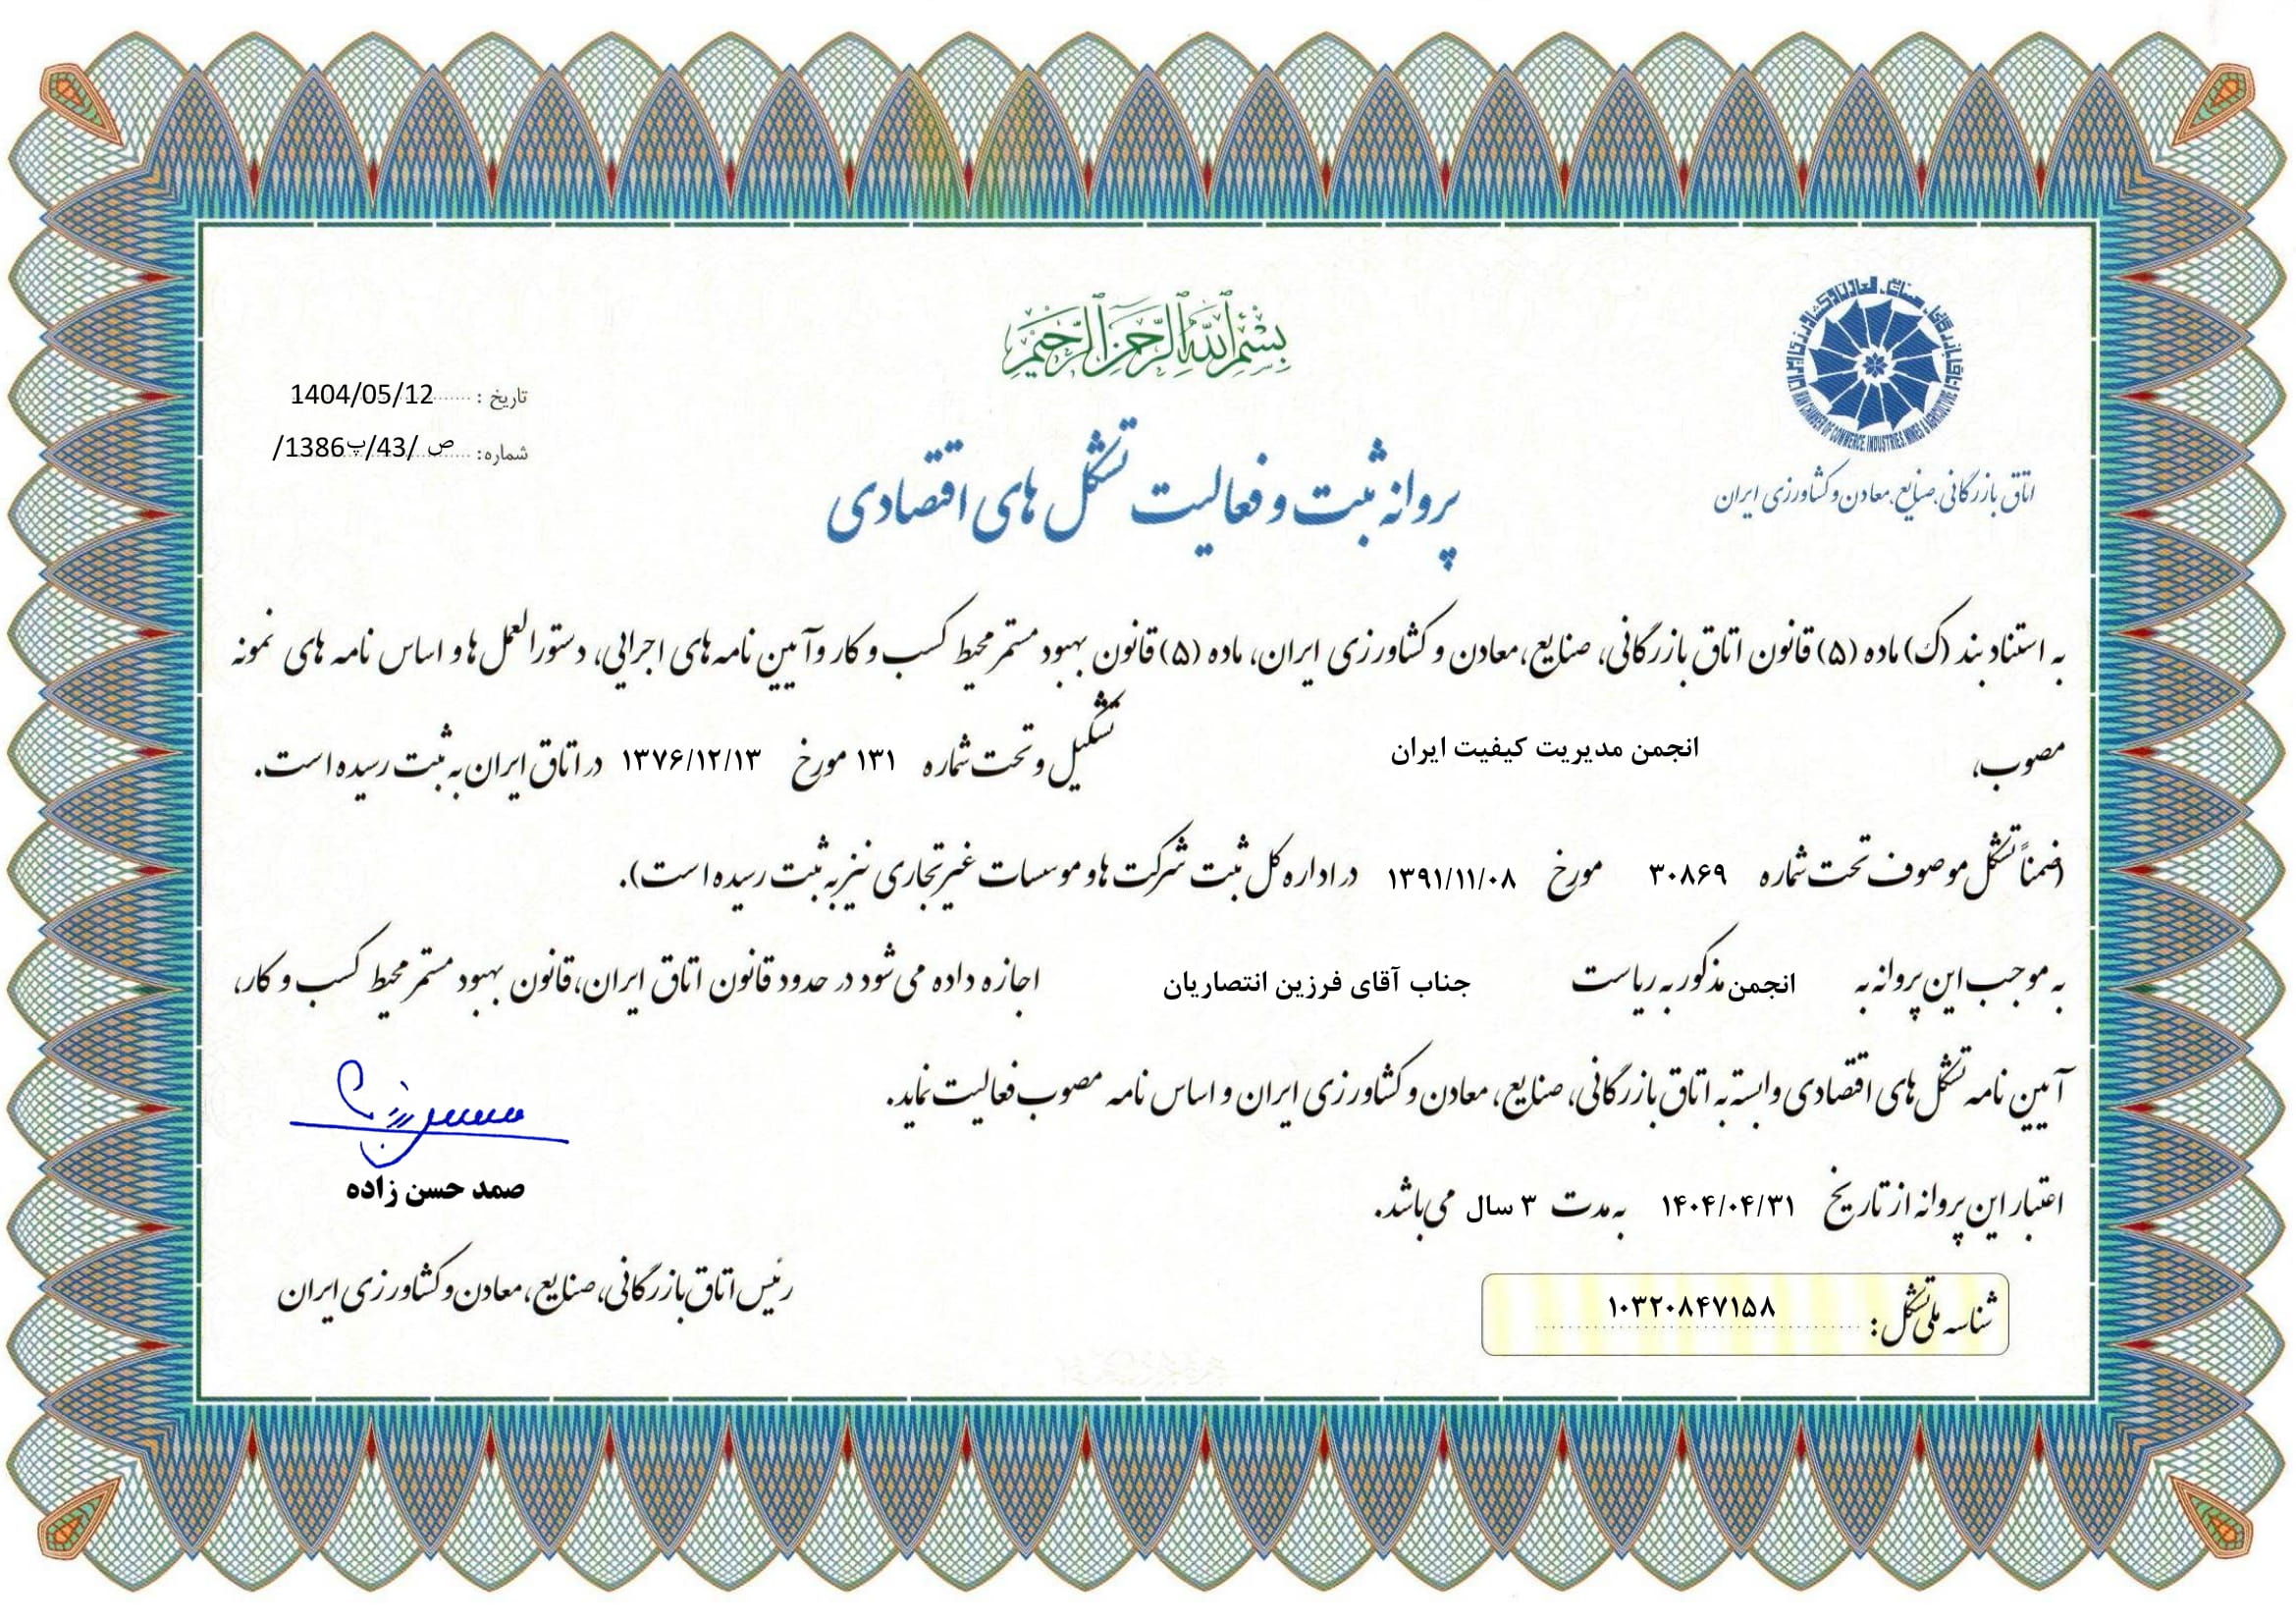 بسم الله الرحمن الرحیم
اتاق بازرگانی، صنایع، معادن و کشاورزی ایران
IRAN CHAMBER OF COMMERCE, INDUSTRIES, MINES & AGRICULTURE
اتاق بازرگانی، صنایع، معادن و کشاورزی ایران
تاریخ : 1404/05/12
شماره: ص /43/پ1386/
پروانه ثبت و فعالیت تشکل های اقتصادی
به استناد بند (ک) ماده (۵) قانون اتاق بازرگانی، صنایع، معادن و کشاورزی ایران، ماده (۵) قانون بهبود مستمر محیط کسب و کار و آیین نامه های اجرایی، دستورالعمل ها و اساس نامه های نمونه
مصوب، انجمن مدیریت کیفیت ایران تشکیل و تحت شماره ۱۳۱ مورخ ۱۳۷۶/۱۲/۱۳ در اتاق ایران به ثبت رسیده است.
(ضمناً تشکل موصوف تحت شماره ۳۰۸۶۹ مورخ ۱۳۹۱/۱۱/۰۸ در اداره کل ثبت شرکت ها و موسسات غیرتجاری نیز به ثبت رسیده است).
به موجب این پروانه به انجمن مذکور به ریاست جناب آقای فرزین انتصاریان اجازه داده می شود در حدود قانون اتاق ایران، قانون بهبود مستمر محیط کسب و کار،
آیین نامه تشکل های اقتصادی وابسته به اتاق بازرگانی، صنایع، معادن و کشاورزی ایران و اساس نامه مصوب فعالیت نماید.
اعتبار این پروانه از تاریخ ۱۴۰۴/۰۴/۳۱ به مدت ۳ سال می باشد.
صمد حسن زاده
رئیس اتاق بازرگانی، صنایع، معادن و کشاورزی ایران
شناسه ملی تشکل: ۱۰۳۲۰۸۴۷۱۵۸